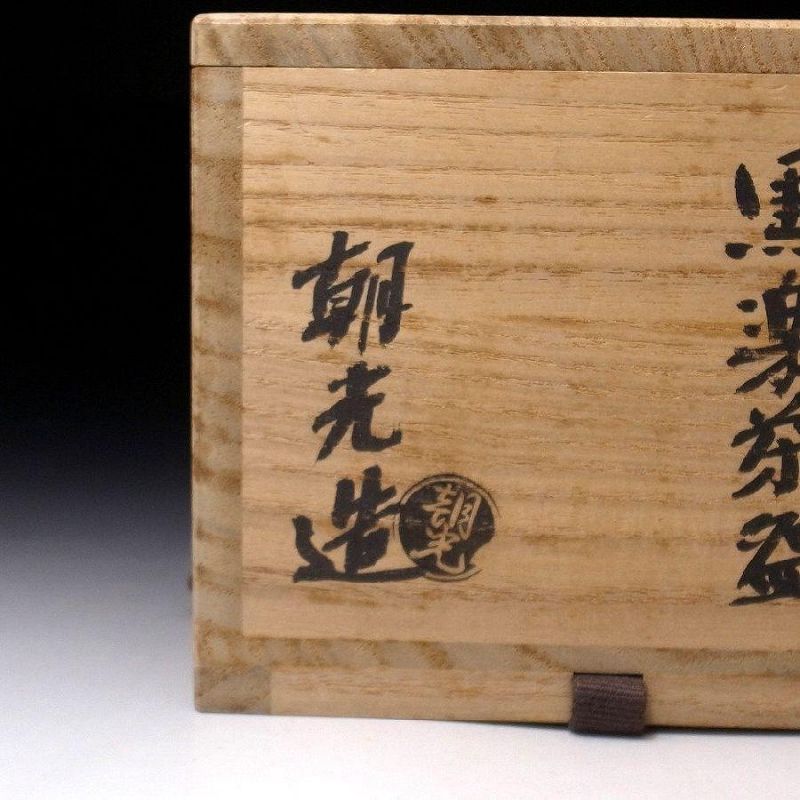 黒楽茶盌
朝光造
朝光